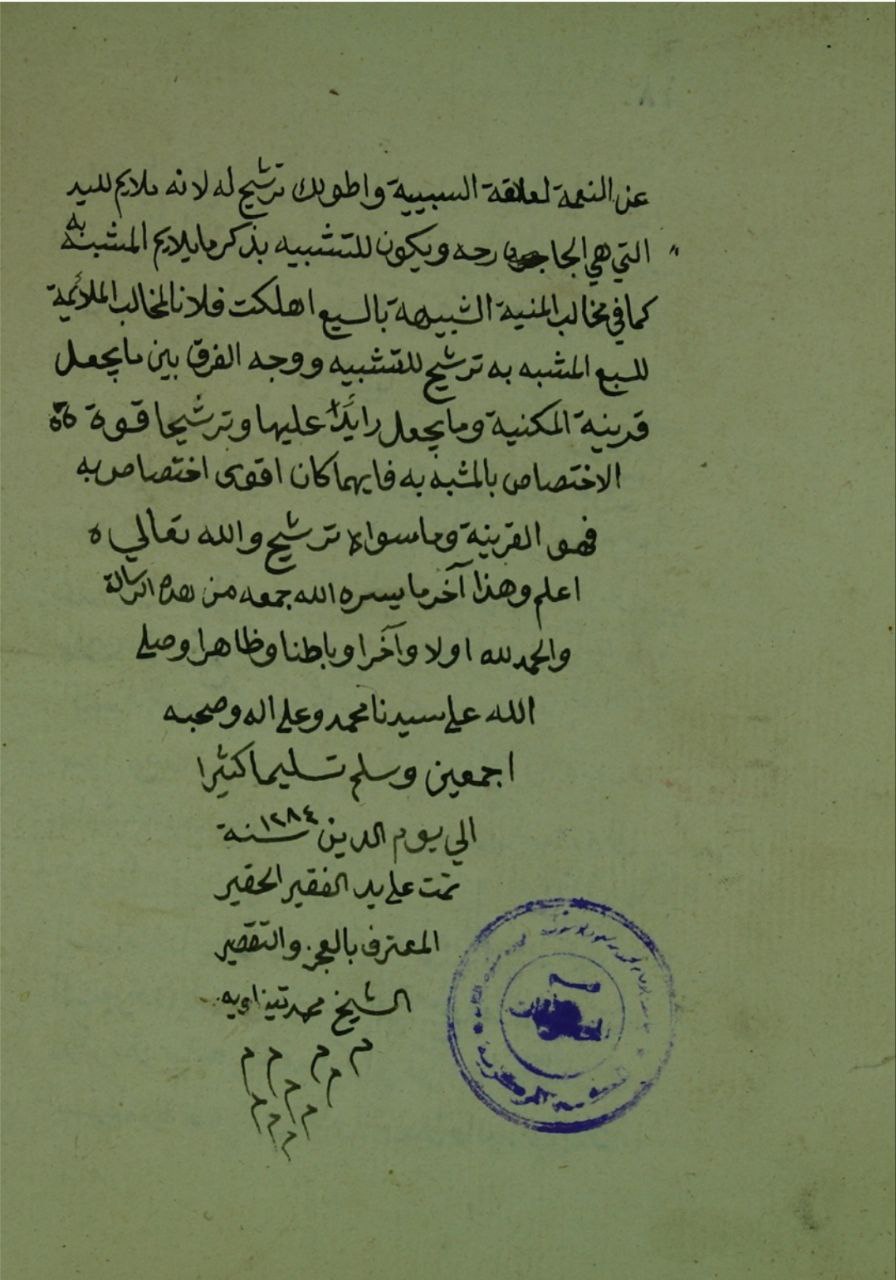 عن النعمة لعلاقة السببية واطولك ترشيح له لانه ملايم لليد
التي هي الجارحه ويكون للتشبيه بذكر ما يلايم المشبه به
كما في مخالب المنية الشبيهة بالسبع اهلكت فلانا لمخالب الملائمة
للسبع المشبه به ترشيح للتشبيه ووجه الفرق بين ما يجعل
قرينة المكنية وما يجعل زايدًا عليها وترشيحا قوة
الاختصاص بالمشبه به فايهما كان اقوى اختصاص به
فهو القرينة وما سواه ترشيح والله تعالي
اعلم وهذا آخر ما يسره الله جمعه من هذه الرسالة
والحمد لله اولا وآخرا وباطنا وظاهرا وصلي
الله علي سيدنا محمد وعلي اله وصحبه
اجمعين وسلم تسليما كثيرا
الي يوم الدين سنة ١٢٨٤
تمت علي يد الفقير الحقير
المعترف بالعجز والتقصير
الشيخ محمد
م م م م